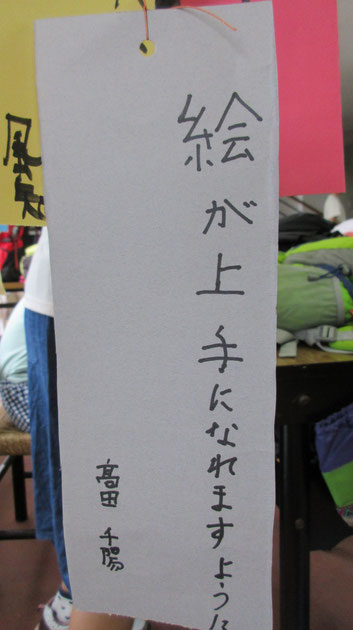 絵が上手になれますように
高田 千陽
風知